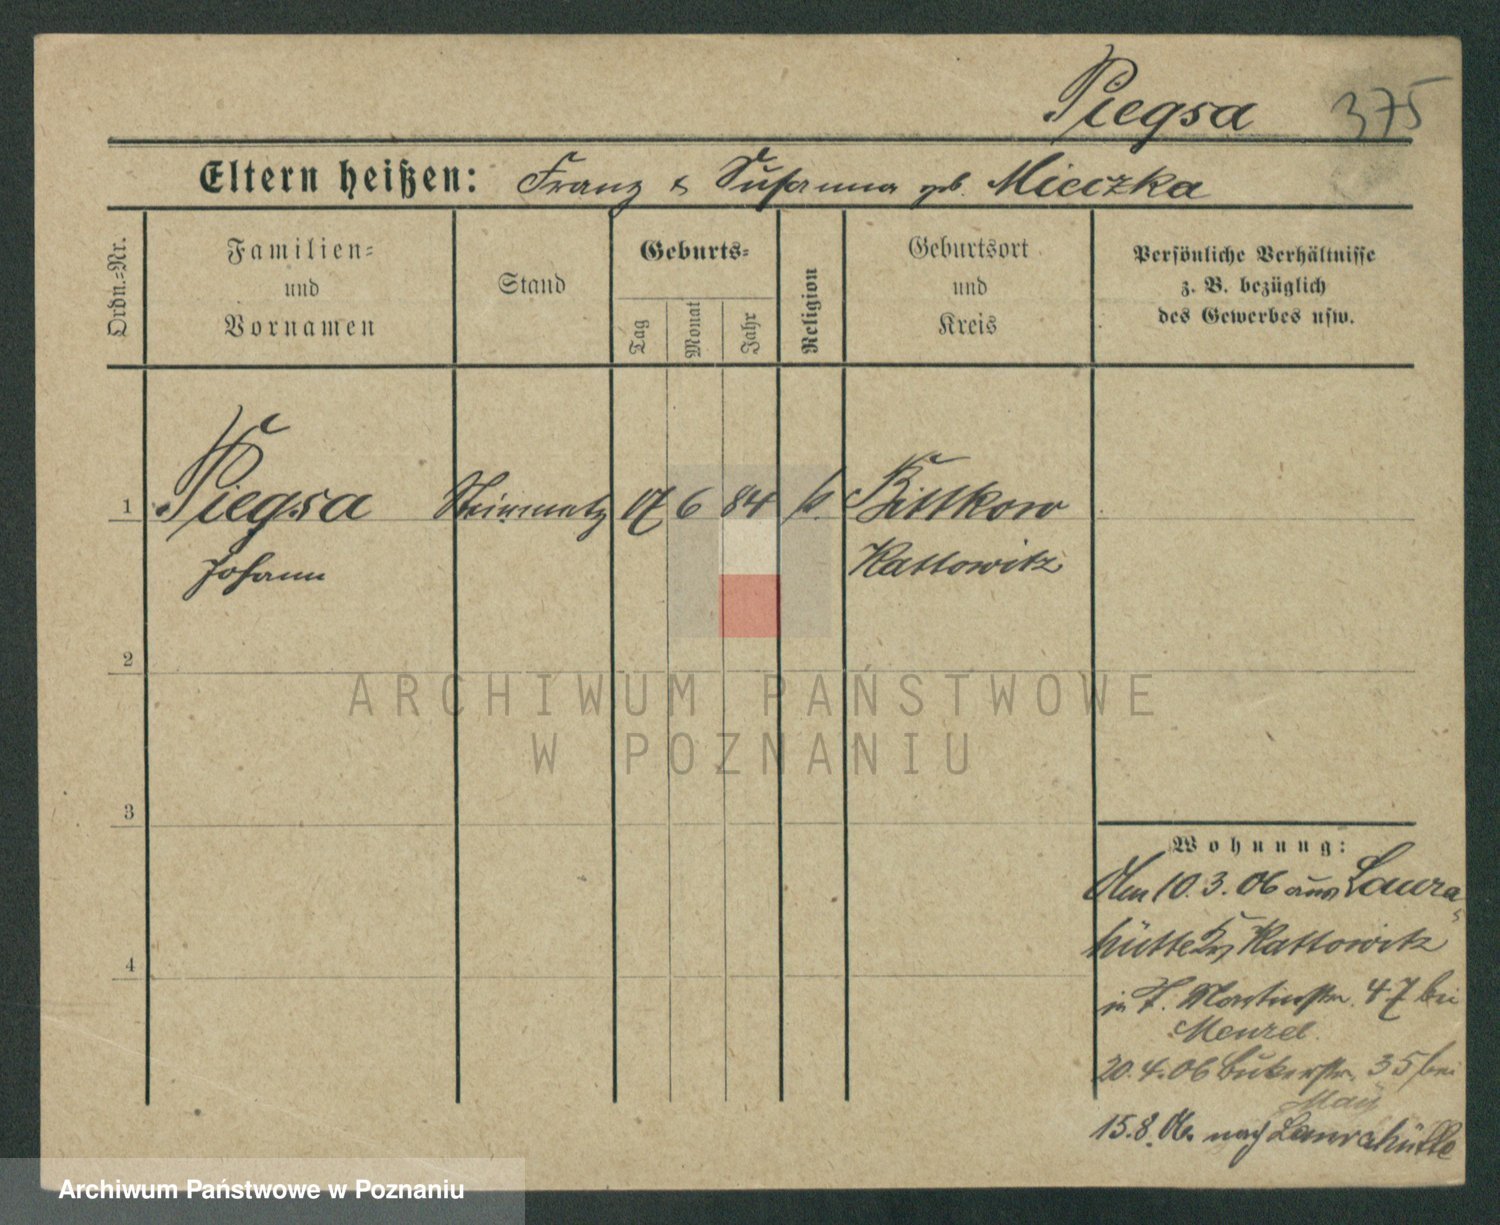 Piegsa 375
Eltern heißen: Franz & Susanna geb. Mieczka
Ordn.=Nr.
Familien=
und
Vornamen
Stand
Geburts=
Tag
Monat
Jahr
Religion
Geburtsort
und
Kreis
Persönliche Verhältnisse
z. B. bezüglich
des Gewerbes usw.
1 Piegsa Steinmetz 17 6 84 k. Bittkow
Johann Kattowitz
2
ARCHIWUM PAŃSTWOWE
W POZNANIU
3
Wohnung:
Den 10.3.06 aus Laura=
hütte Kattowitz
4
in P. Martinstr. 47 bei
Menzel.
20.4.06 Bukerstr. 35 bei
May
15.8.06 nach Laurahütte
Archiwum Państwowe w Poznaniu